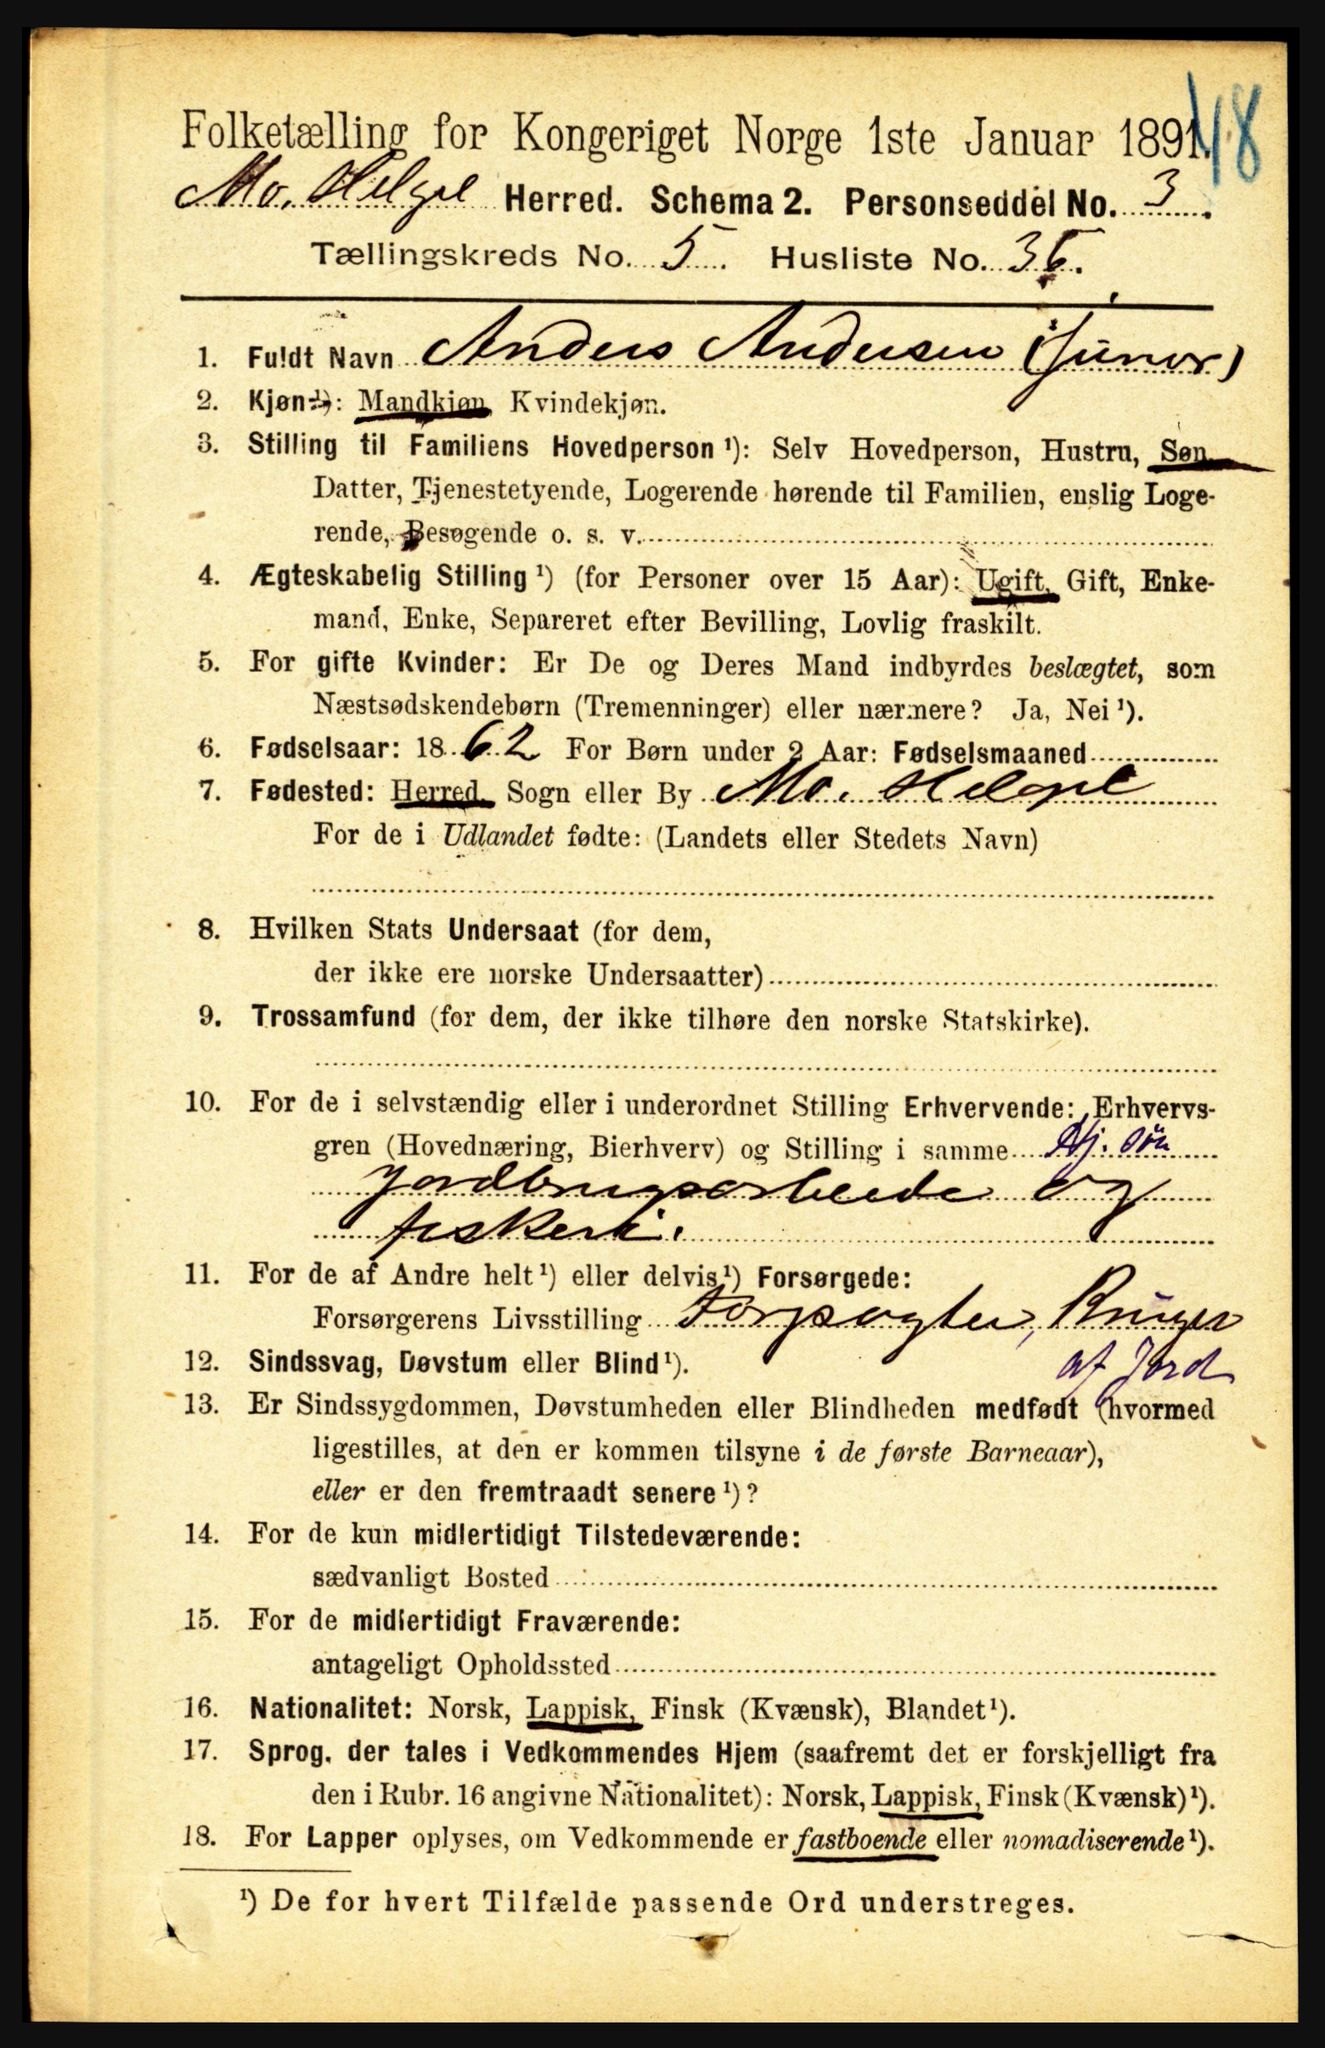 Folketælling for Kongeriget Norge 1ste Januar 1891.
Mo. Helgel Herred. Schema 2. Personseddel No. 3.
Tællingskreds No. 5. Husliste No. 36.
1. Fuldt Navn Anders Andersen (Junior)
2. Kjøn ¹): Mandkjøn, Kvindekjøn.
3. Stilling til Familiens Hovedperson ¹): Selv Hovedperson, Hustru, Søn,
Datter, Tjenestetyende, Logerende hørende til Familien, enslig Loge-
rende, Besøgende o. s. v.
4. Ægteskabelig Stilling ¹) (for Personer over 15 Aar): Ugift, Gift, Enke-
mand, Enke, Separeret efter Bevilling, Lovlig fraskilt.
5. For gifte Kvinder: Er De og Deres Mand indbyrdes beslægtet, som
Næstsødskendebørn (Tremenninger) eller nærmere? Ja, Nei ¹).
6. Fødselsaar: 1862 For Børn under 2 Aar: Fødselsmaaned
7. Fødested: Herred, Sogn eller By Mo. Helgel
For de i Udlandet fødte: (Landets eller Stedets Navn)
8. Hvilken Stats Undersaat (for dem,
der ikke ere norske Undersaatter)
9. Trossamfund (for dem, der ikke tilhøre den norske Statskirke).
10. For de i selvstændig eller i underordnet Stilling Erhvervende: Erhvervs-
gren (Hovednæring, Bierhverv) og Stilling i samme Hj. søn
Jordbrugsarbeide og
fiskeri.
11. For de af Andre helt ¹) eller delvis ¹) Forsørgede:
Forsørgerens Livsstilling Forpagter, Bruger
af Jord
12. Sindssvag, Døvstum eller Blind ¹).
13. Er Sindssygdommen, Døvstumheden eller Blindheden medfødt (hvormed
ligestilles, at den er kommen tilsyne i de første Barneaar),
eller er den fremtraadt senere ¹)?
14. For de kun midlertidigt Tilstedeværende:
sædvanligt Bosted
15. For de midlertidigt Fraværende:
antageligt Opholdssted
16. Nationalitet: Norsk, Lappisk, Finsk (Kvænsk), Blandet ¹).
17. Sprog, der tales i Vedkommendes Hjem (saafremt det er forskjelligt fra
den i Rubr. 16 angivne Nationalitet): Norsk, Lappisk, Finsk (Kvænsk) ¹).
18. For Lapper oplyses, om Vedkommende er fastboende eller nomadiserende ¹).
¹) De for hvert Tilfælde passende Ord understreges.